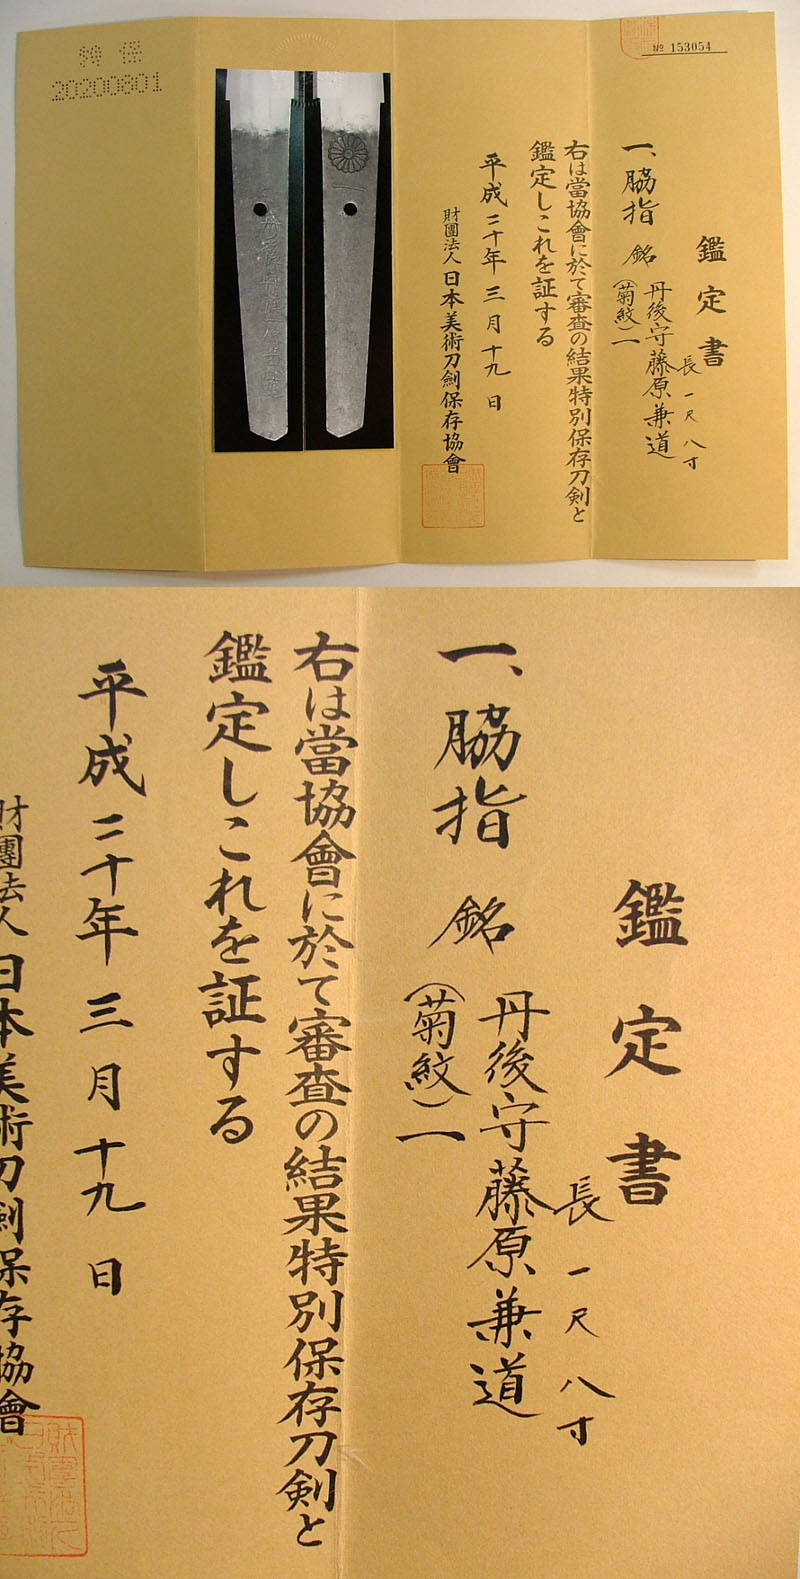 № 153054
鑑定書
長一尺八寸
一、脇指 銘 丹後守藤原兼道
(菊紋)一
右は當協會に於て審査の結果特別保存刀剣と
鑑定しこれを証する
平成二十年三月十九日
財團法人 日本美術刀劍保存協會
特保
20200801
鑑定書
長一尺八寸
一、脇指 銘 丹後守藤原兼道
(菊紋)一
右は當協會に於て審査の結果特別保存刀剣と
鑑定しこれを証する
平成二十年三月十九日
財團法人 日本美術刀劍保存協會